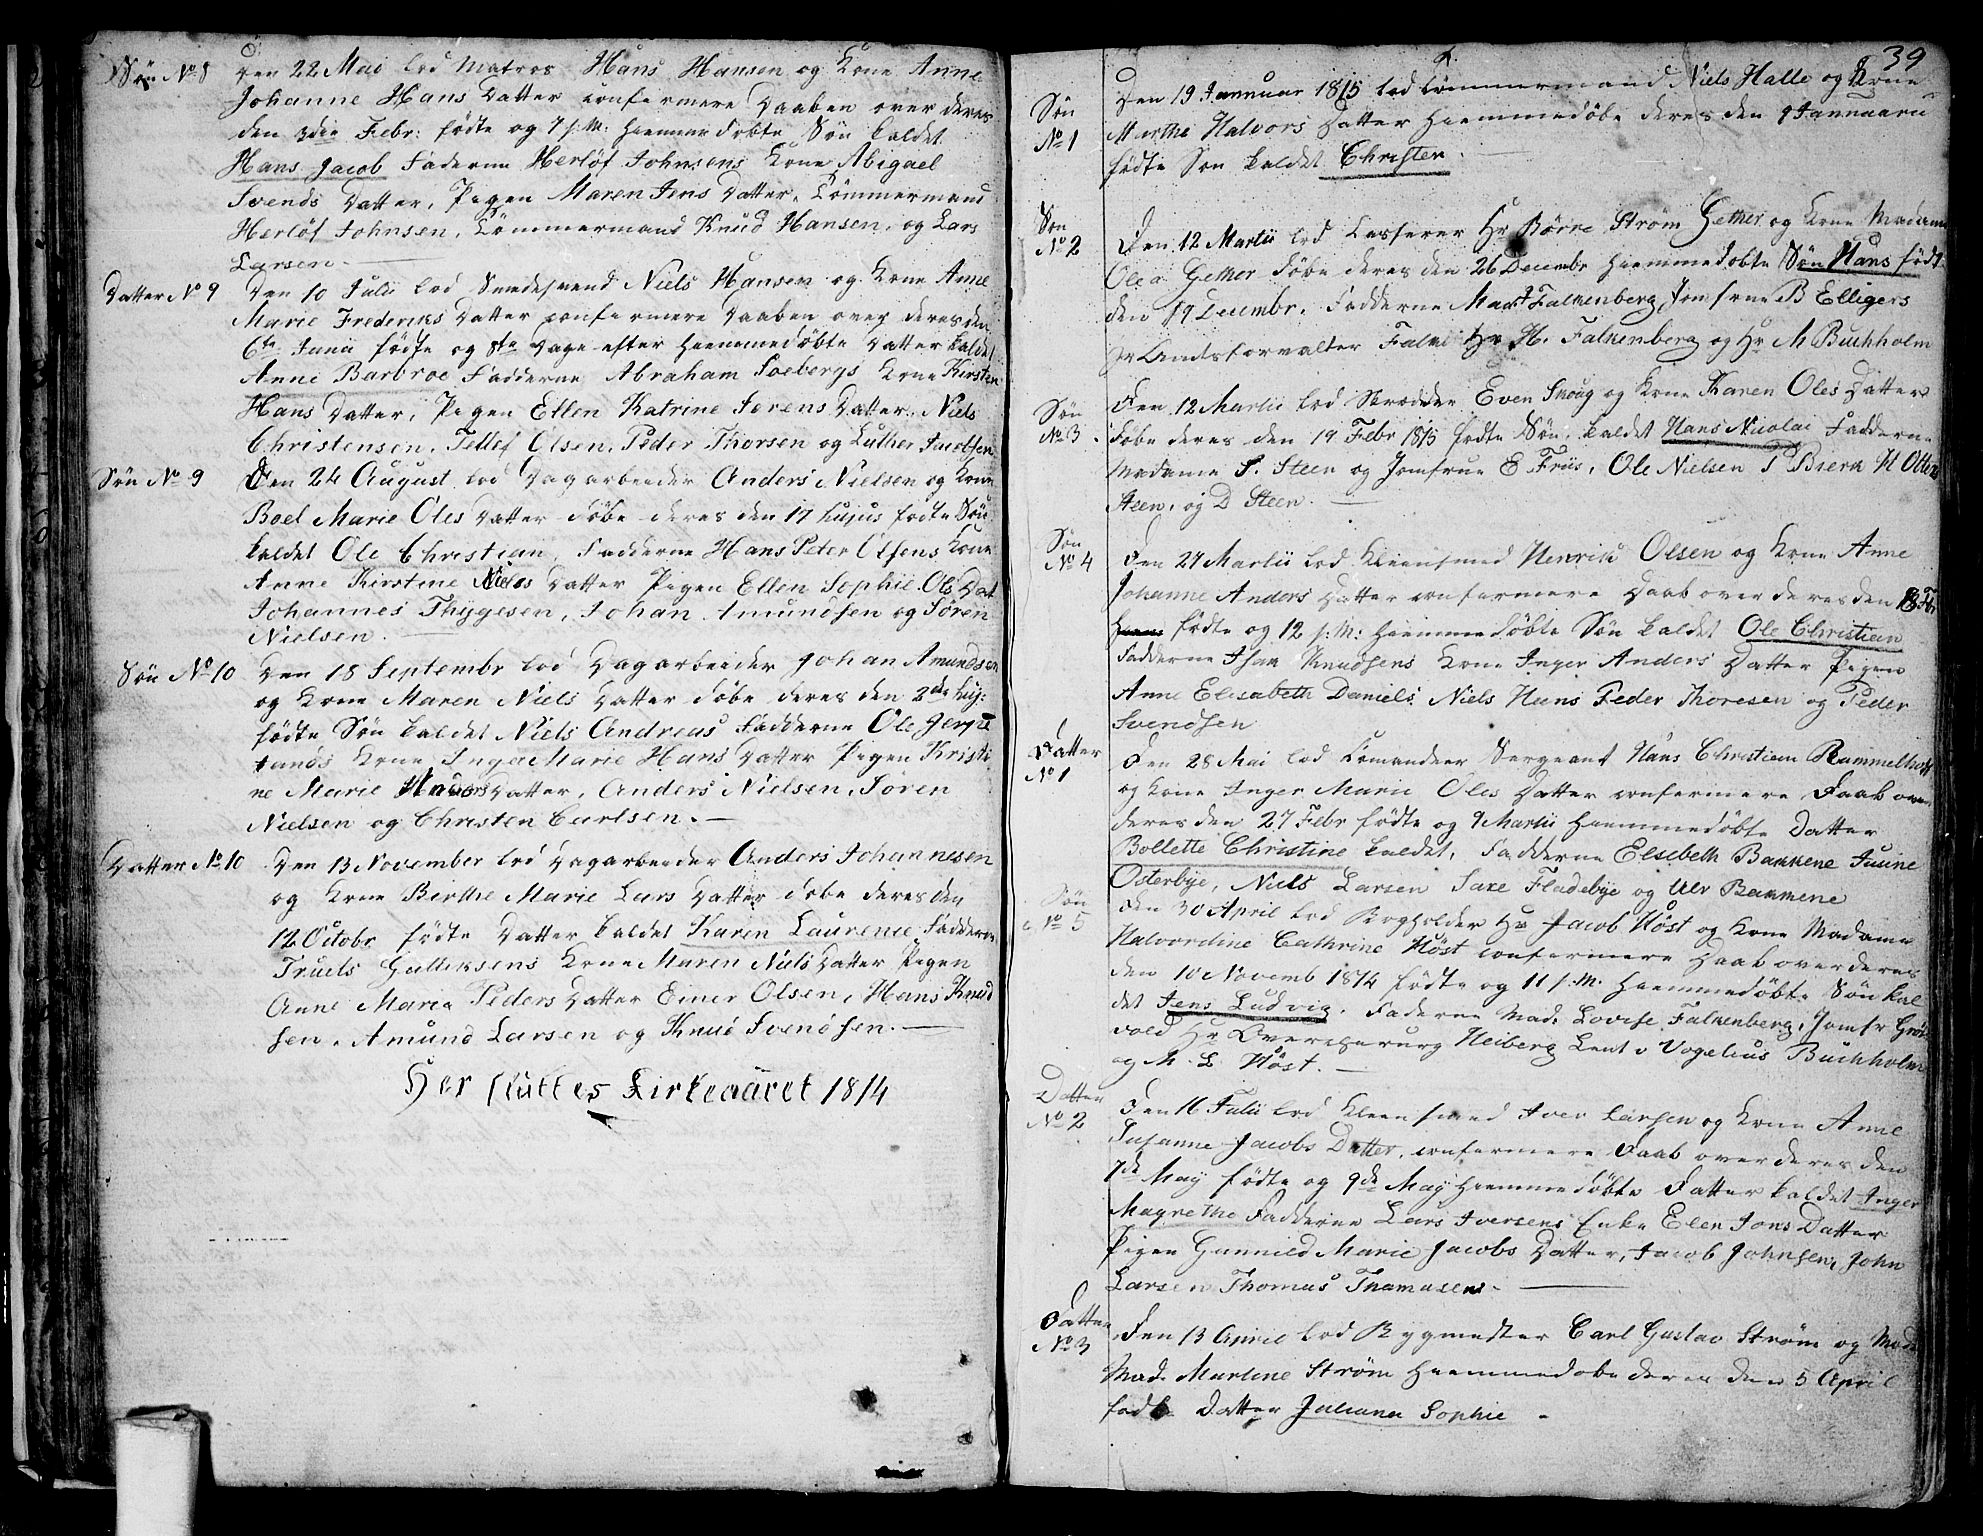 Søn No 8
Den 22 Mai lod Matros Hans Hansen og Kone Anne
Johanne Hans Datter confermere Daaben over deres
den 3die Febr: fødte og 7 s: M: hiemmedøbte Søn kaldet
Hans Jacob Faderne Herløf Johnsens Kone Abigael
Svends Datter, Pigen Maren Jens Datter, Tömmermand
Herløf Johnsen, Tömmermand Knud Hansen, og Lars
Larsen.
Datter No 9
Den 10 Julii lod Smedesvend Niels Hansen og Kone Anne
Marie Frederiks Datter confermere Daaben over deres den
6te Junii fødte og 8te Dage efter hiemmedöbte Datter kaldet
Anne Barbroe Fadderne Abraham Soebergs Kone Kirsten
Hans Datter, Pigen Ellen Katrine Sørens Datter, Niels
Christensen, Tellef Olsen, Peder Thorsen og Luther Jacobsen
Søn No 9
Den 24 August lod Dagarbeider Anders Nielsen og Kone
Boel Marie Oles Datter døbe deres den 17 hujus fødte Søn
kaldet Ole Christian, Fadderne Hans Peter Olsens Kone
Anne Kirstine Niels Datter Pigen Ellen Sophie Ols Dat
Johannes Thygesen, Johan Amundsen og Søren
Nielsen.
Søn No 10
Den 18 Septembr lod Dagarbeider Johan Amundsen
og Kone Maren Niels Datter döbe deres den 2den huj:
fødte Søn kaldet Niels Andreas Fadderne Ole Jerps
tands Kone Inger Marie Hans Datter Pigen Kristi
ne Marie Datter, Anders Nielsen, Søren
Nielsen og Christen Carlsen.
Datter No 10
Den 13 November lod Dagarbeider Anders Johannesen
og Kone Berthe Marie Lars Datter döbe deres den
12 Octobr fødte Datter kaldet Karen Laurense Faddere
Truels Gulliksens Kone Maren Niels Datter Pigen
Anne Maria Peders Datter Einer Olsen, Hans Knud
sen, Amund Larsen og Knud Svendsen.
Her sluttes Kirkeaaret 1814
39
Søn
No 1
Den 19 Januar 1815 lod tömmermand Niels Halle og Kone
Marthe Halvors Datter hiemmedöbe deres den 9 Januarii
födte Søn kaldet Christen.
Søn
No 2
Den 12 Martii lod Casserer Hr Børre Strøm Gether og Kone Madame
Olea Gether døbe deres den 26 Decembr hiemmedøbte Søn Hans født
den 19 Decembr. Fadderne Mad Falkenberg, Jomfrue B Elligers
Hr Landsforvalter Falk Hr H. Falkenberg og Hr M Buchholm
Søn
No 3
Den 12 Martii lod Skrædder Even Snoug og Kone Karen Oles Datter
døbe deres den 19 Febr 1815 fødte Søn kaldet Hans Nicolai Fadderne
Madame S. Steen og Jomfrue E Friis, Ole Nielsen P Bierk H Otte
Steen, og D Steen.
Søn
No 4
Den 24 Martii lod Kleinsmed Henrik Olsen og Kone Anne
Johanne Anders Datter confermere Daab over deres den
fødte og 12 s: M: hiemmedöbte Søn kaldet Ole Christian
Fadderne Isak Knudsens Kone Inger Anders Datter Pigen
Anne Elisabeth Daniels, Niels Hans Peder Thoresen og Peder
Svendsen
Datter
No 1
Den 28 Mai lod Comandeer Sergeant Hans Christian Rammelhoff
og Kone Inger Marie Oles Datter confermere Daab over
deres den 27 Febr fødte og 9 Martii hiemmedöbte Datter
Bollette Christine kaldet, Fadderne Elsebeth Bakkene Juuine
Osterbye, Niels Larsen Saxe Fladebye og Ulv Bakkene
Søn
No 5
Den 30 April lod Bogholder Hr Jacob Höst og Kone Madame
Halvordine Cathrine Höst confermere Daab over deres
den 10 Novemb 1814 fødte og 11 s: M: hiemmedöbte Søn kal
det Jens Ludvig. Faderne Mad. Lovise Falkenberg, Jomfr Grön
vold Hr Overchirurg Heiberg Leut v Vogelius Buchholm
og M. L Höst.
Datter
No 2
Den 16 Julii lod Kleensmed Iver Larsen og Kone Anne
Susanne Jacobs Datter, confermere Daab over deres den
7de May fødte og 9de May hiemmedöbte Datter kaldet Inger
Magrethe Fadderne Lars Iversens Enke Elen Jons Datter
Pigen Gunnild Marie Jacobs Datter, Jacob Johnsen, John
Larsen Thomas Thamasen.
Datter
No 3
Den 13 April lod Bygmester Carl Gustav Strøm og
Mad. Martine Strøm hiemmedøbe deres den 5 April
født Datter Juliana Sophie.